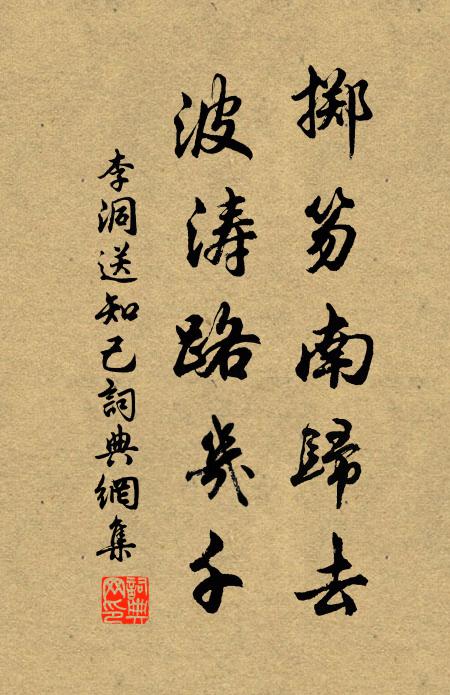 掷笏南歸去
波涛路幾千
李洞送知己詞典網集
詞典网印